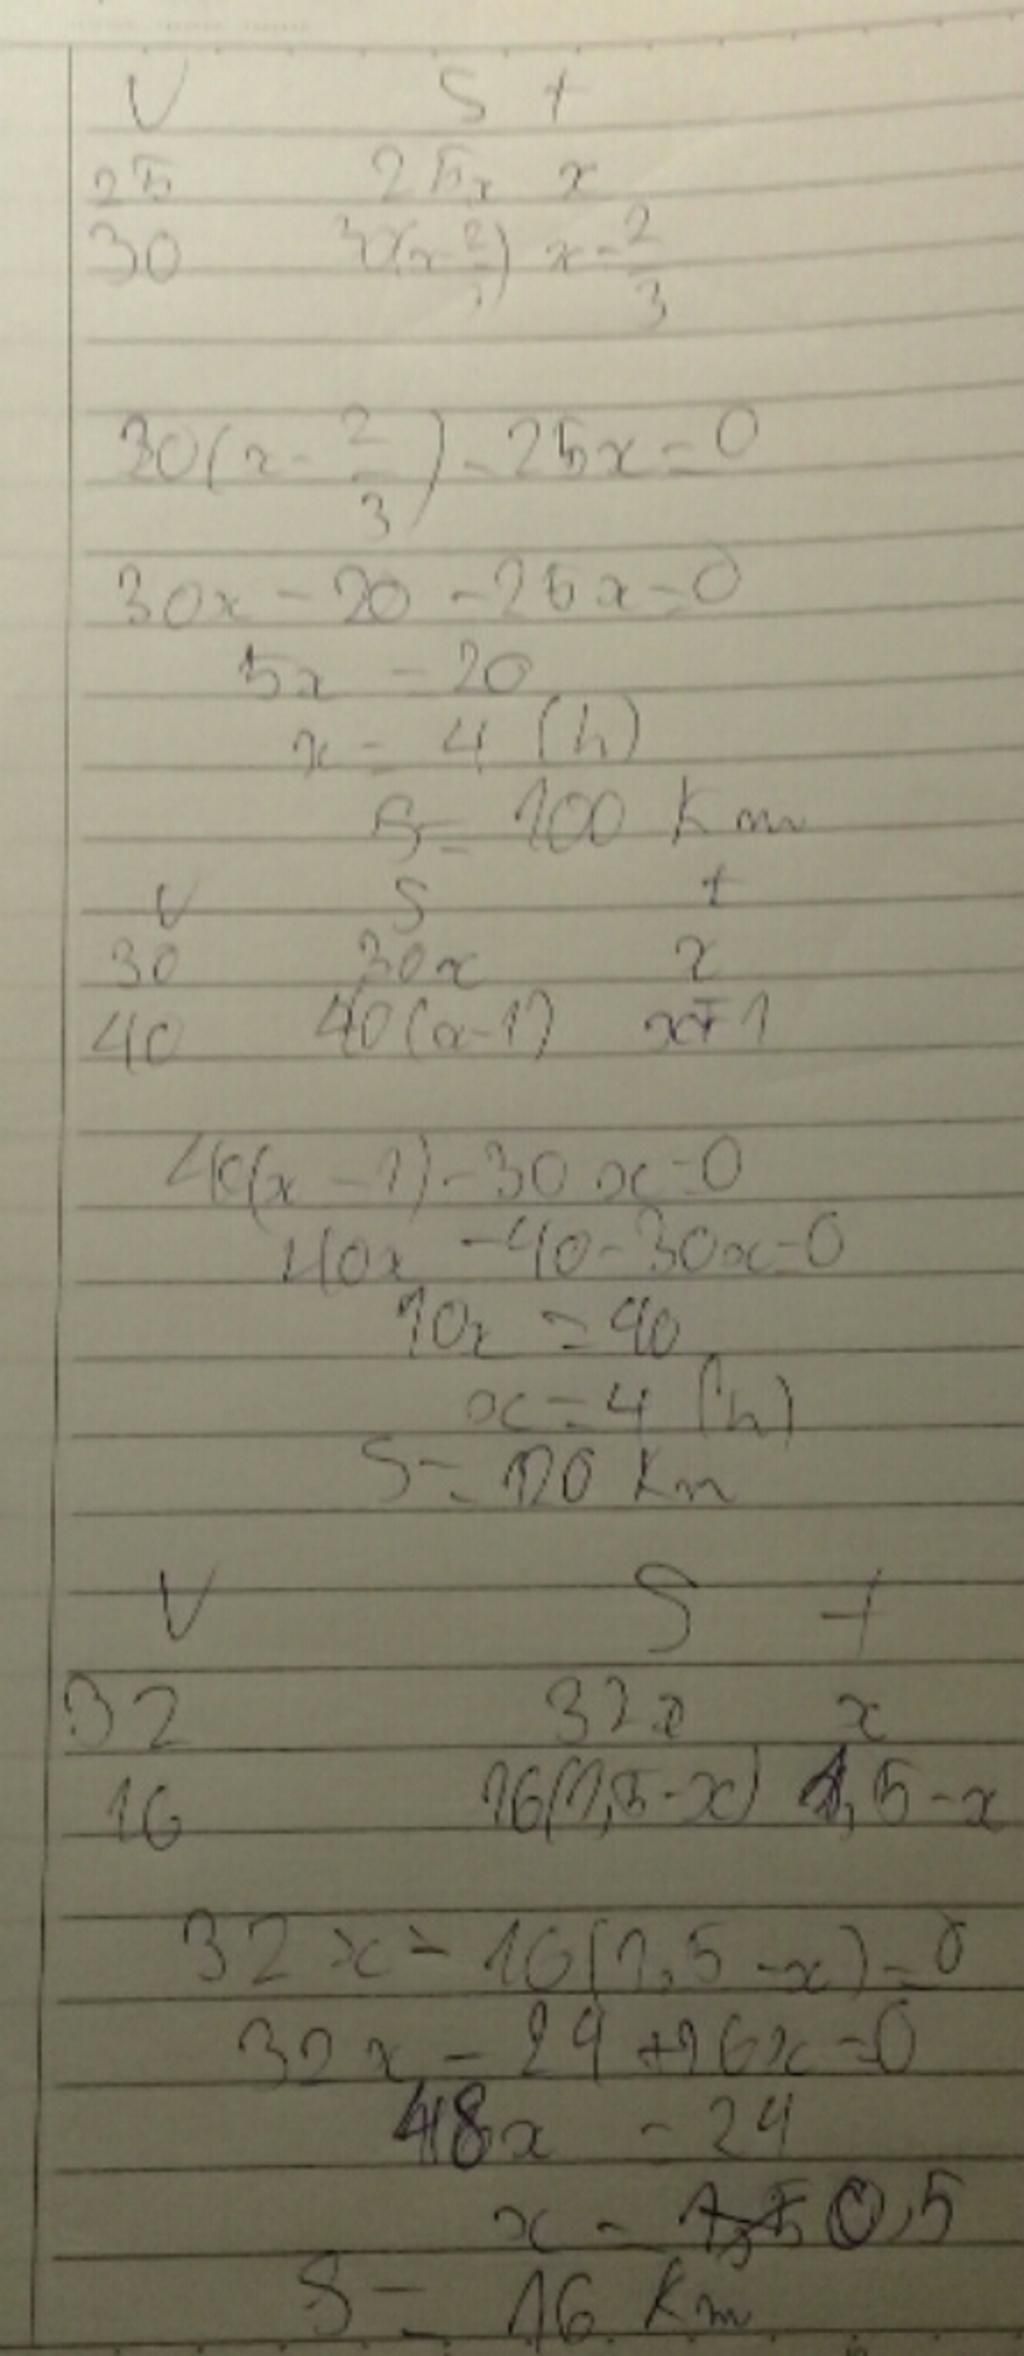 V S t
25 25x x
30 30(x-2/3) x-2/3
30(x-2/3)-25x=0
30x-20-25x=0
5x=20
x=4 (h)
S=100 Km
V S t
30 30x x
40 40(x-1) x-1
40(x-1)-30x=0
40x-40-30x=0
10x=40
x=4 (h)
S=120 Km
V S t
32 32x x
16 16(1,5-x) 1,5-x
32x-16(1,5-x)=0
32x-24+16x=0
48x=24
x=0,5
S=16 Km